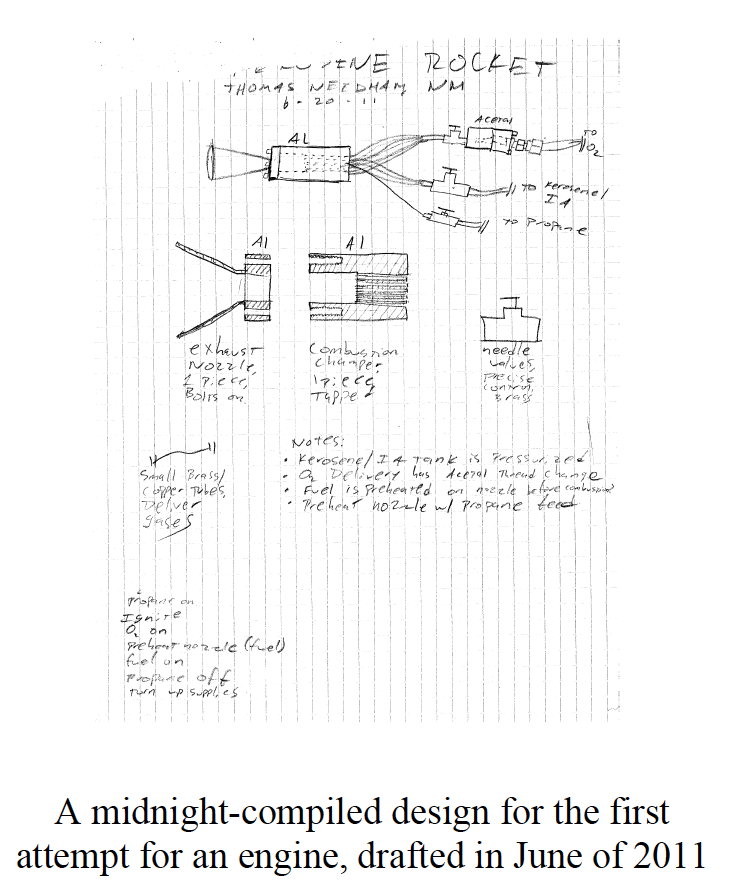 ROCKET
THOMAS NEEDHAM NM
6-20-11
Acetal
AL
TO
O2
TO Kerosene/
I4
TO Propane
Al
Al
exhaust
Nozzle,
1 piece,
Bolts on
Combustion
Chamber,
1 piece,
needle
valves,
precise
control,
Brass
Small Brass/
Copper Tubes,
Deliver
gases
Notes:
• Kerosene/I4 tank is Pressurized
• O2 Delivery has Acetal Thread Change
• Fuel is preheated on nozzle before combustion
• Preheat nozzle w/ Propane feed
propane on
Ignite
O2 on
preheat nozzle (fuel)
fuel on
Propane off
turn up supplies
A midnight-compiled design for the first
attempt for an engine, drafted in June of 2011